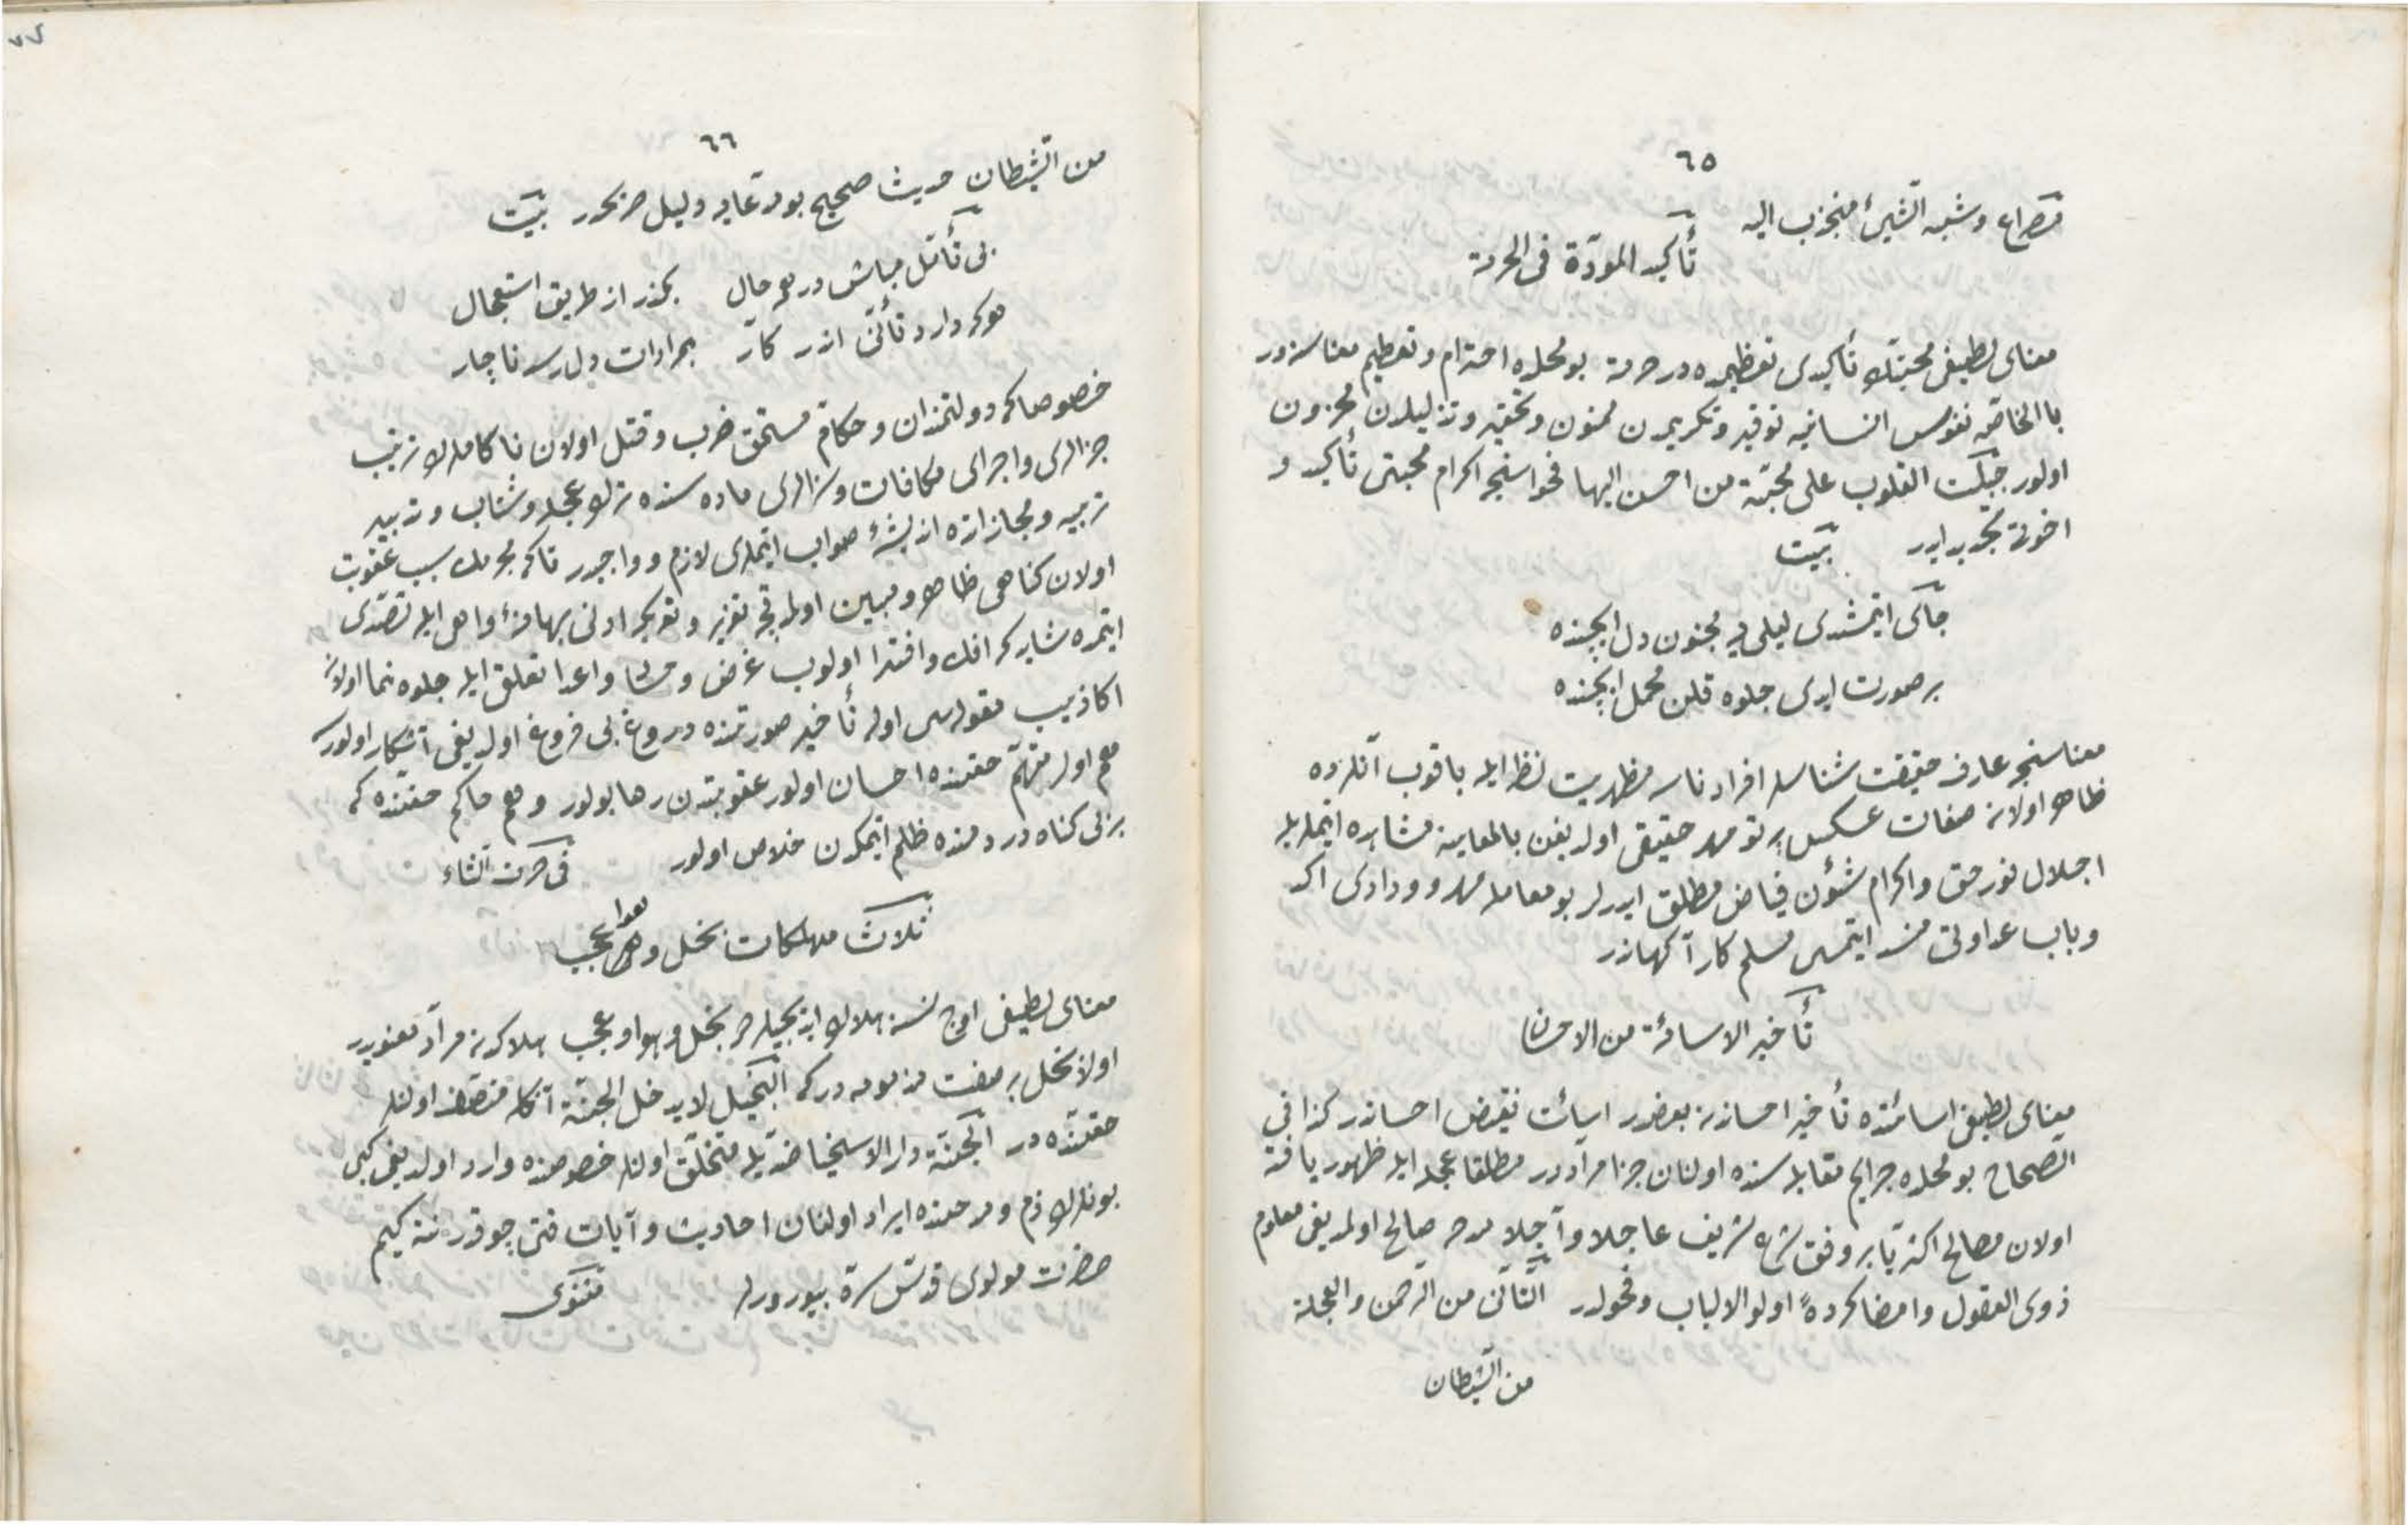 ٦٥
مصراع وشبه الشیئ منجذب الیه
تأکید المودّة فی الحرمة
معنای لطیفی محبتك تأکیدی تعظیمده در حرمة بو محلده احترام وتعظیم معناسنه در
با الخاصّه نفوس انسانیه توقیر وتکریمدن ممنون وتحقیر وتذلیلدن محزون
اولور جبلت القلوب علی محبّة من احسن الیها فحواسنجه اکرام محبتی تأکید و
اخوتی تجدید ایدر بیت
جای ایتمشدی لیلی یه مجنون دل ایچنده
بر صورت ایدی جلوه قلن محمل ایچنده
معناسنجه عارف حقیقت شناسلر افراد ناسه مظهریت نظر ایله باقوب آنلرده
ظاهر اولان صفات عکس پرتو مهر حقیقی اولدیغن بالمعاینه مشاهده ایتملریله
اجلال نور حق واکرام شؤن فیاض مطلق ایدرلر بو معامله مهر وودادی اکد
وباب عداوتی سد ایتمسی مسلم کار آکهاندر
تأخیر الاسائة من الاحسان
معنای لطیفی اسائتده تأخیر احساندن بعضدر اسائت نقیض احساندر کذا فی
الصحاح بو محلده جرایم مقابله سنده اولنان جزا مراددر مطلقا عجله ایله ظهور یافته
اولان مصالح اکثریّا بر وفق شرع شریف عاجلا وآجلا صالح اولمدیغی معلوم
ذوی العقول وامضا کردۀ اولو الالباب وفحولدر التّأنّی من الرّحمن والعجلة
من الشّیطان
٦٦
من الشّیطان حدیث صحیح بو مدّعایه دلیل صریحدر بیت
بی تأمّل مباش در هر حال بکذر از طریق استعجال
هر که دارد تأنّی اندر کار بمرادات دل رسد ناچار
خصوصا که دولتمندان وحکام مستحق ضرب وقتل اولان ناکاملرك ترتیب
جزالری واجرای مکافات وسزالری ماده سنده ترك عجله وشتاب وتدبیر
تربیه ومجازاتده اندیشۀ صواب ایتملری لازم وواجبدر تا که مجرمك سبب عقوبت
اولان کناهی ظاهر ومبین اولمدقجه تعزیر وتعریکه ادنی بهانۀ واهی ایله تصدّی
ایتمیه شاید که افك وافترا اولوب غرض واعدا تعلق ایله جلوه نما اولان
اکاذیب مقوله سی اوله تأخیر صورتنده دروغ بی فروغ اولدیغی آشکار اولور
هم اولر متهم حقنده احسان اولور عقوبتدن رها بولور وهم حاکم حقنده که
بر بی کناه دردمنده ظلم ایتمکدن خلاص اولور فی حرف الثاء
ثلاث مهلکات بخل وهوا وعجب
معنای لطیفی اوج نسنه هلاك ایدیجیلردر بخل وهوا وعجب هلاکدن مراد معنویدر
اولا بخل بر صفت مذمومه درکه البخیل لا یدخل الجنّة آنکله متصف اولنلر
حقنده در الجنّة دار الاسخیا ضدّیله متخلّق اولنلر خصوصنده وارد اولدیغی کبی
بونلرك ذم ومدحنده ایراد اولنان احادیث وآیات قتی چوقدر نته کیم
حضرت مولوی قدّس سرّه بیوررلر مثنوی